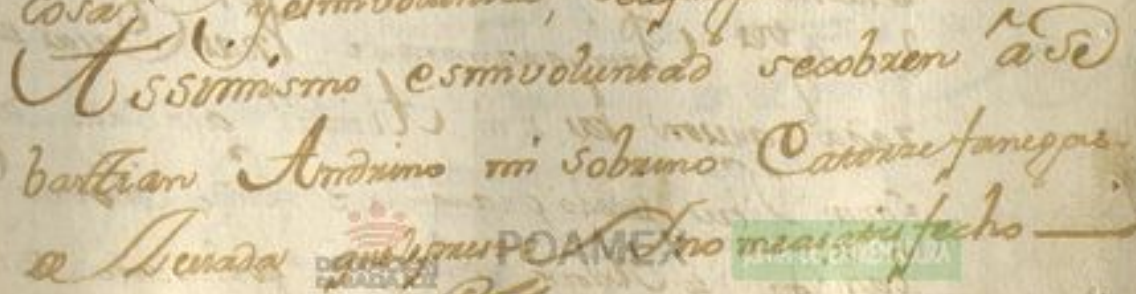 cosa y es mi voluntad,
Assimismo es mi voluntad se cobren â Se
bastian Andrino mi sobrino Catorze fanegas
de Zevada que y no me a satisfecho
POAMEX